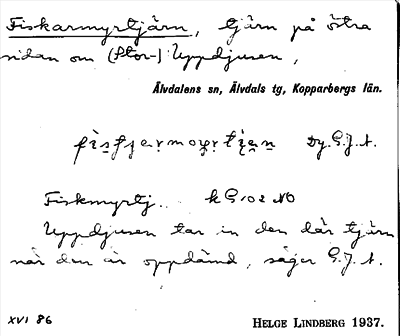 Fiskarmyrtjärn, tjärn på östra
sidan om (Stor-) Uppdjusen,
Älvdalens sn, Älvdals tg, Kopparbergs län.
Dy. G.J.A.
Fiskmyrtj.. kG 102 NO
Uppdjusen tar in den där tjärn
när den är oppdämd, säger G.J.A.
XVI 86
HELGE LINDBERG 1937.